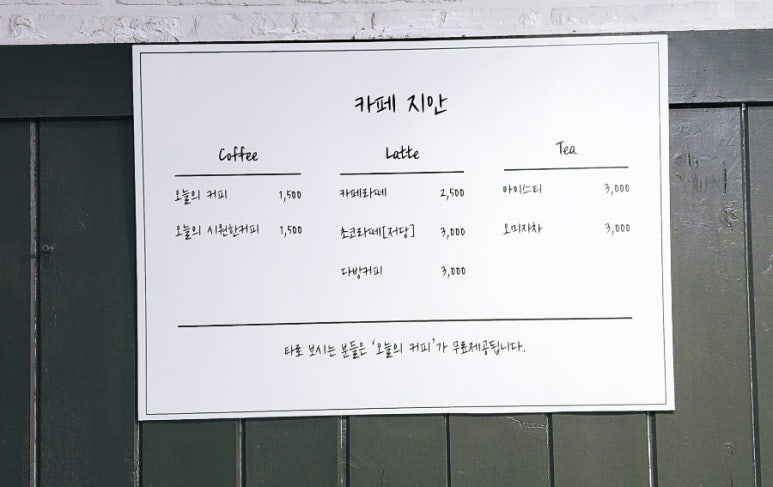 카페 지안
Coffee
오늘의 커피 1,500
오늘의 시원한커피 1,500
Latte
카페라떼 2,500
초코라떼[저당] 3,000
다방커피 3,000
Tea
아이스티 3,000
오미자차 3,000
타로 보시는 분들은 '오늘의 커피'가 무료제공됩니다.